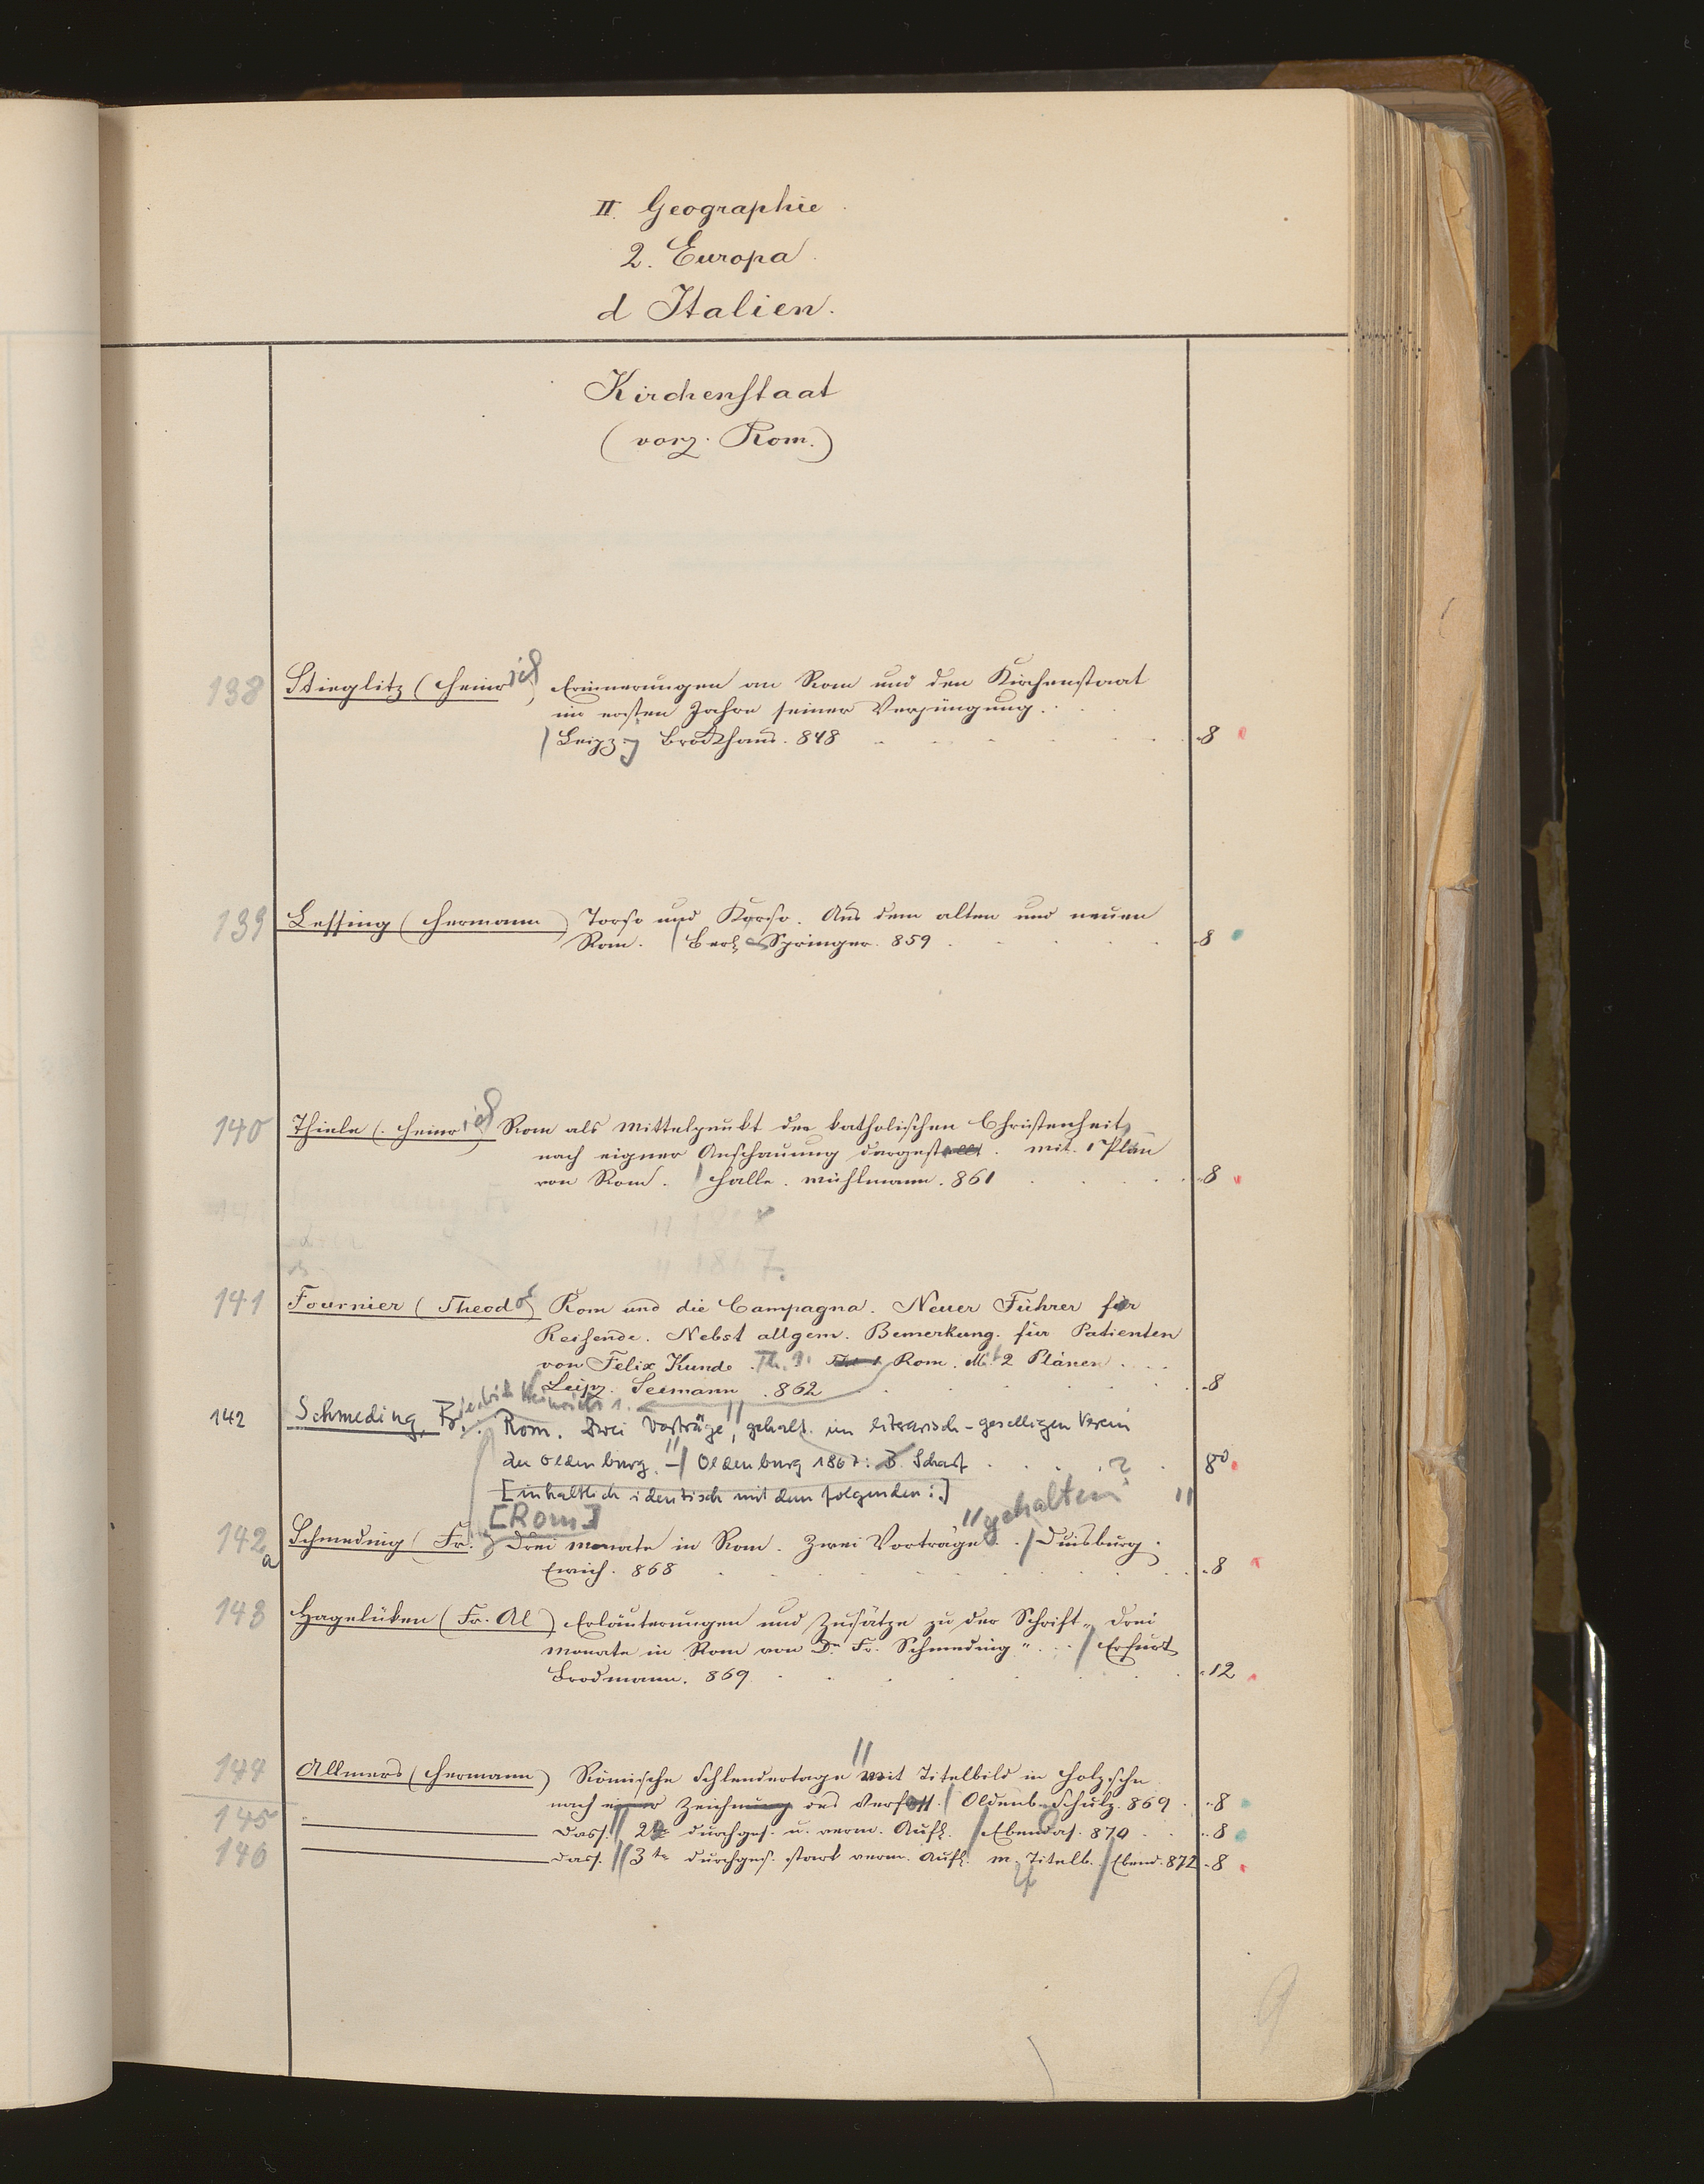 II. Geographie.
2. Europa.
d Italien.
Kirchenstaat
(vorz. Rom.)
138 Stieglitz (Heinrich) Erinnerungen an Rom und den Kirchenstaat
im ersten Jahre seiner Verjüngung.
/ Leipzg Brockhaus. 848 8
139 Lessing (Hermann) Torso und Korso. Aus dem alten und neuen
Rom. / Berl. Springer. 859 8
140 Thiele (Heinrich) Rom als Mittelpunkt der katholischen Christenheit,
nach eigner Anschauung dargestellt. Mit 1 Plan
von Rom. / Halle. Mühlmann. 861 8
141 Fournier (Theodor) Rom und die Campagna. Neuer Führer für
Reisende. Nebst allgem. Bemerkung. für Patienten
von Felix Kunde. Rom. Mit 2 Plänen
Leipz. Seemann. 862 8
142 Schmeding, Friedrich Heinrich Rom. Zwei Vorträge, gehalt. im literarisch-geselligen Verein
zu Oldenburg. – / Oldenburg 1867: Scharf 8°
[inhaltlich identisch mit dem folgenden:]
[Rom] // gehalten ? //
142a Schmeding (Fr.) Drei Monate in Rom. Zwei Vorträge. / Duisburg.
Ewich. 868 8
143 Hagelüken (Fr. Al) Erläuterungen und Zusätze zu der Schrift „Drei
Monate in Rom von Dr. Fr. Schmeding". / Erfurt
Brodmann. 869 12
144 Allmers (Hermann) Römische Schlendertage // Mit Titelbild in Holzschn
nach einer Zeichnung des Verfass. / Oldenb. Schulz. 869 8
145 — Dass. // 2te durchges. u. verm. Aufl. / Ebendas. 870 8
146 — Dass. // 3te durchges. stark verm. Aufl. m. Titelb. / Ebend. 872 8
9